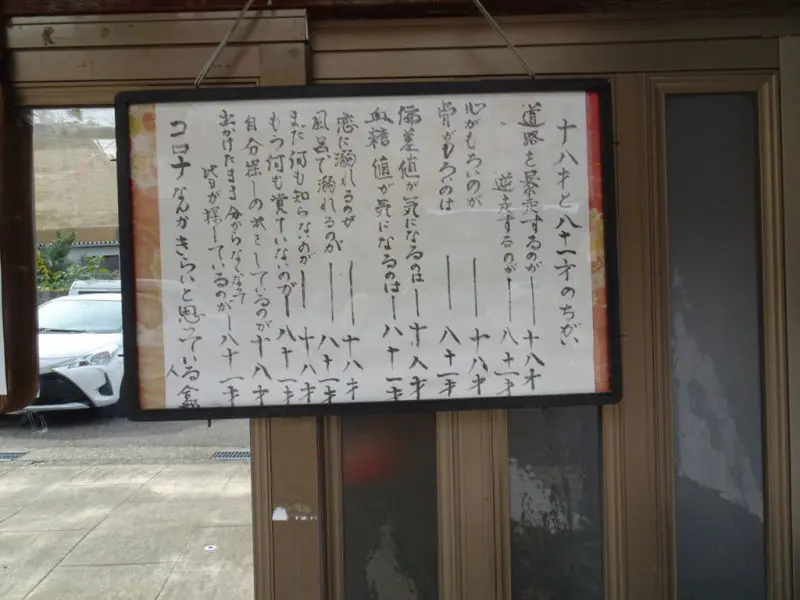 十八才と八十一才のちがい
道路を暴走するのが——十八才
逆走するのが——八十一才
心がもろいのが——十八才
骨がもろいのは——八十一才
偏差値が気になるのは—十八才
血糖値が気になるのは—八十一才
恋に溺れるのが——十八才
風呂で溺れるのが——八十一才
まだ何も知らないのが——十八才
もう何も覚ていないのが—八十一才
自分探しの旅をしているのが十八才
出かけたまま分からなくなって
皆が探しているのが—八十一才
コロナなんかきらいと思っている